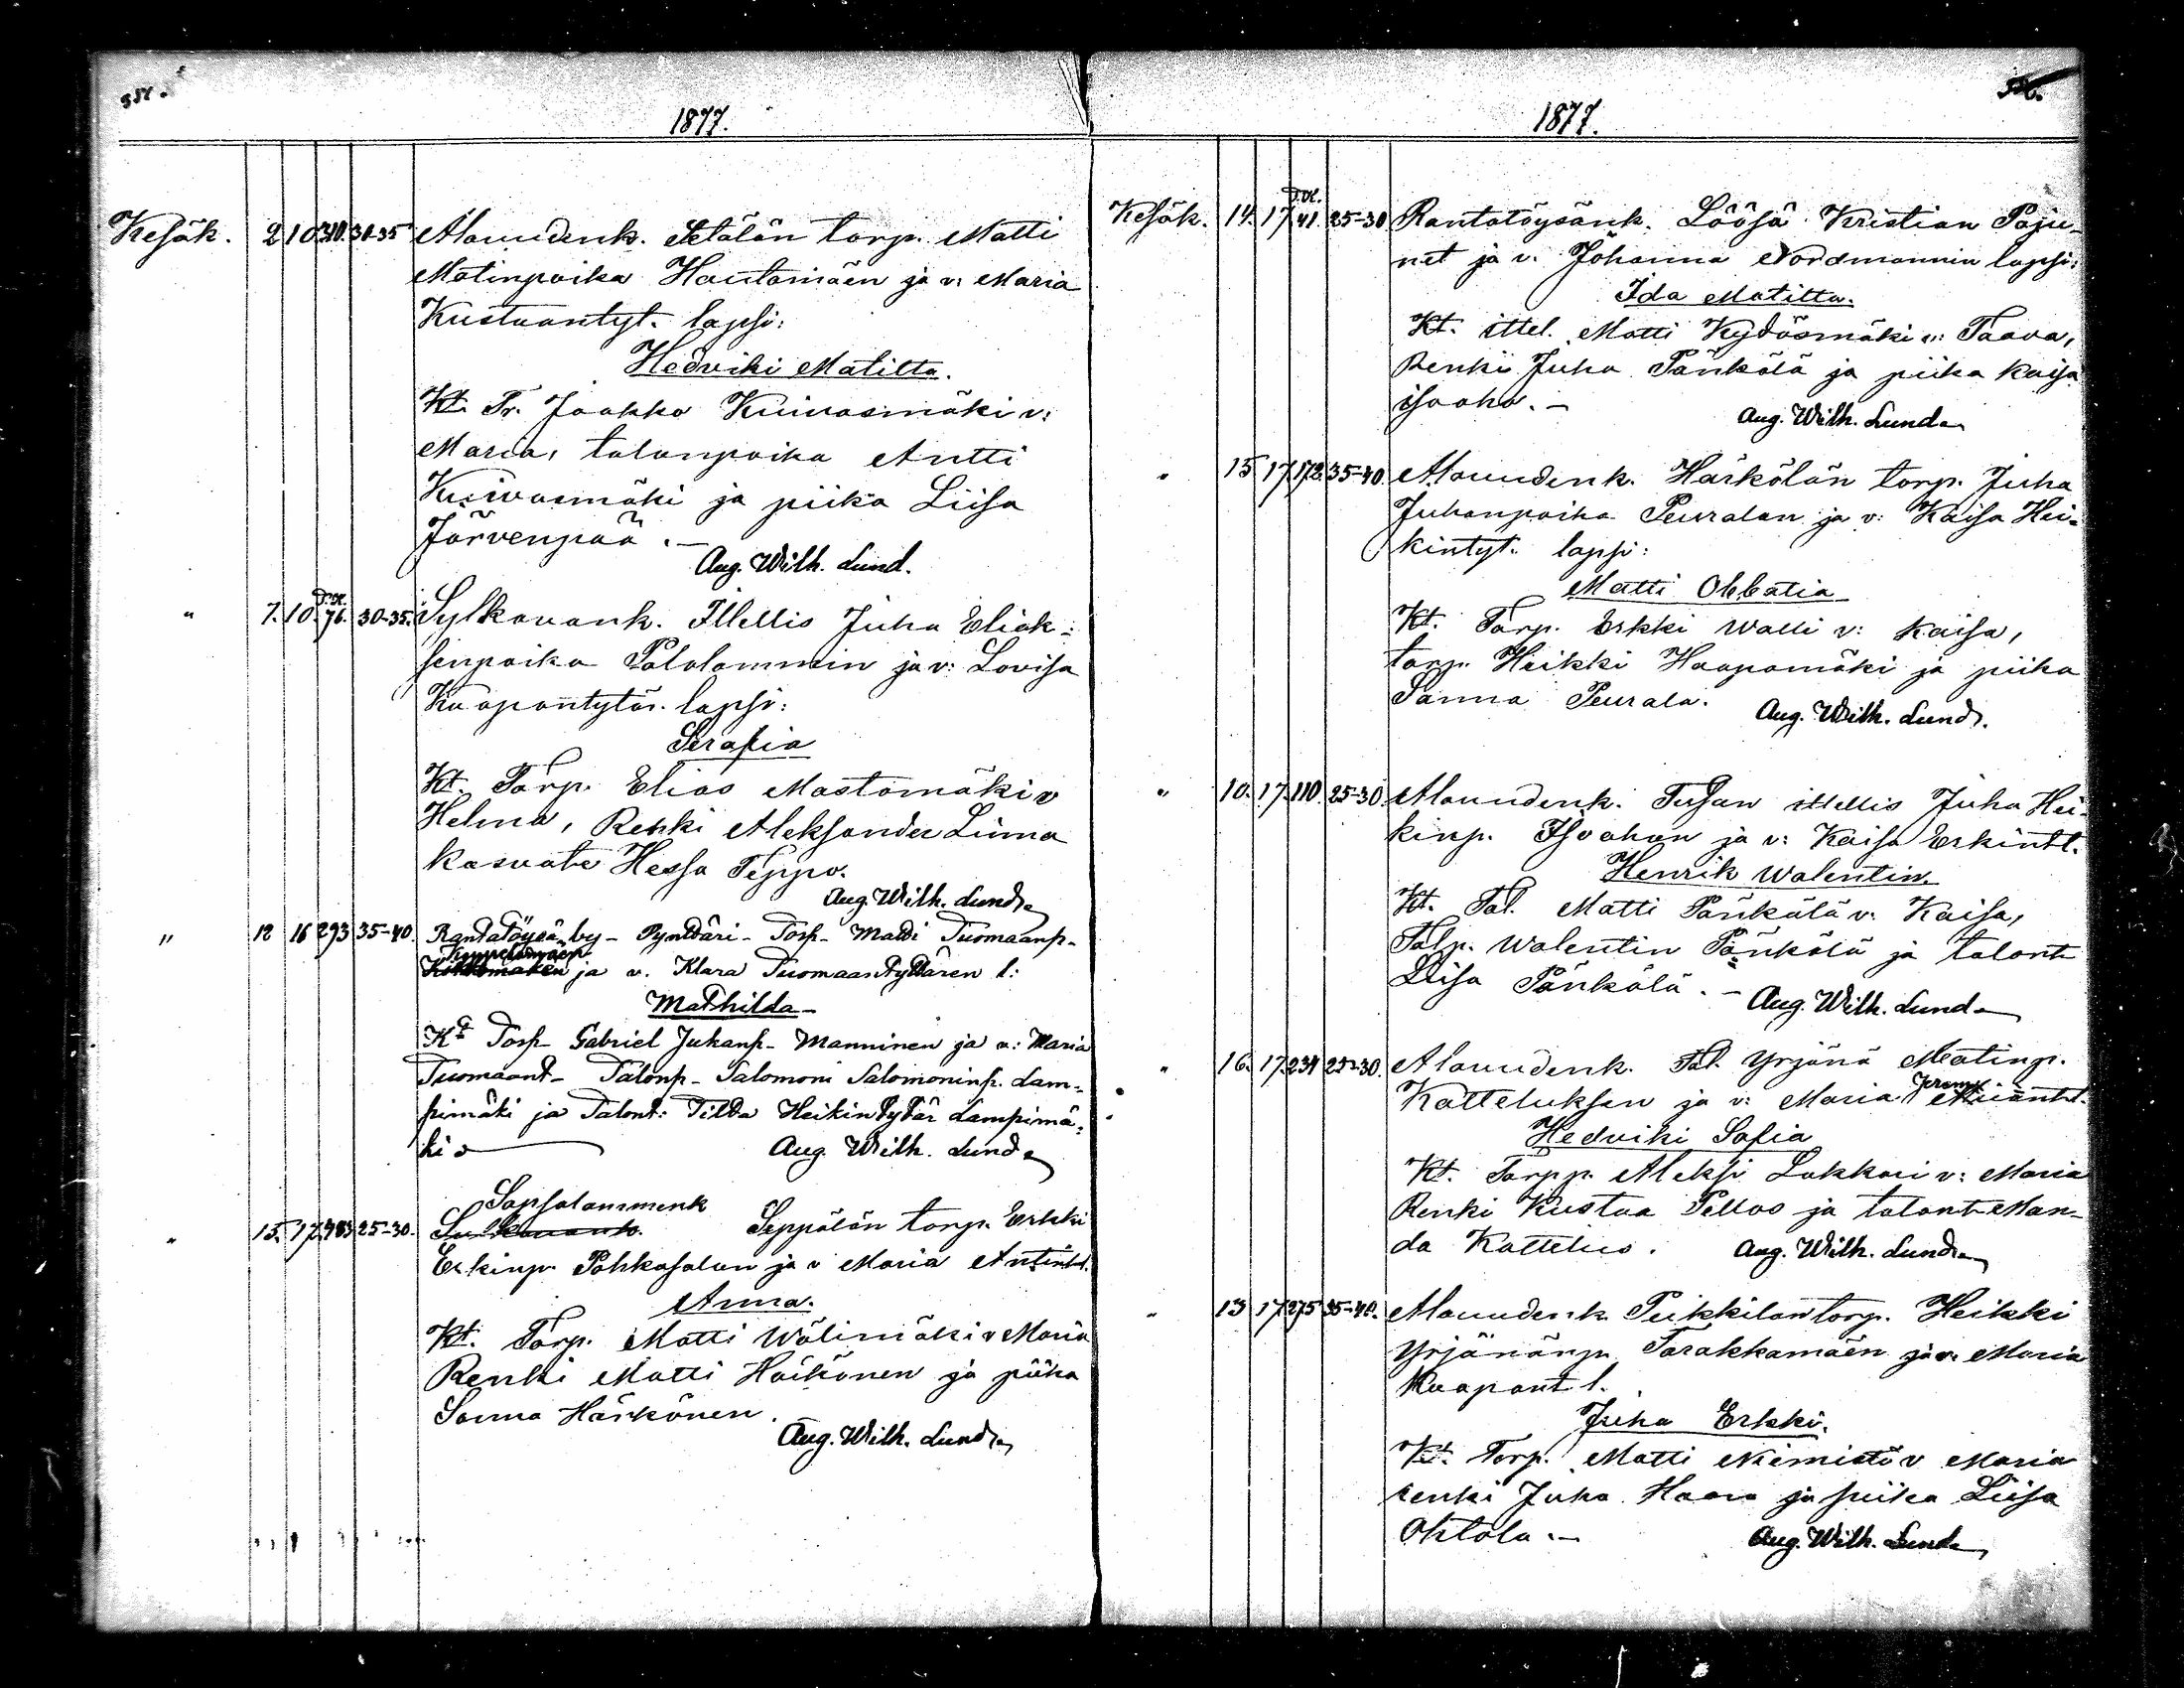 1877.
Kesäk. 2 10 310. 30-35 Alavudenk. Etälän torp. Matti
Matinpoika Hautamäen ja v: Maria
Kustaantyt. lapsi:
Hedviki Matilta.
Kt. Tr. Jaakko Kuivasmäki v:
Maria, talonpoika Antti
Kuivasmäki ja piika Liisa
Järvenpää.–
Aug. Wilh. Lund.
" 7. 10. 76. 30-35. Sylkävänk. Itellis Juha Eliak-
senpoika Palolammin ja v: Lovisa
Kaapontytär. lapsi:
Serafia
Kt. Torp. Elias Mastomäki v
Helma, Renki Aleksander Liima
kasvate Hessa Teppo.
Aug. Wilh. Lund
" 12 16 293 35-40 Rantatöysä by- Pynttäri- Torp- Matti Tuomaanp-
ja v. Klara Tuomaantyttären l:
Mathilda-
Kt Torp- Gabriel Juhanp- Manninen ja v: Maria
Tuomaant- Talonp- Salomoni Salomoninp. Lam-
pimäki ja Talont: Tilda Heikintytär Lampimä-
ki
Aug. Wilh. Lund
Sapsalammenk
" 15. 17. 483 25-30. Seppälän torp. Erkki
Erkinp. Pahkasalan ja v Maria Antint.
Anna.
Kt. Torp. Matti Wälimäki v Maria
Renki Matti Häkönen ja piika
Sanna Härkönen.
Aug. Wilh. Lund
1877.
Kesäk. 14. 17 41. 25-30 Rantatöysänk. Löösä Kristian Paju-
net ja v. Johanna Nordmannin lapsi:
Ida Matilta.
Kt. ittel. Matti Kydösmäki v: Taava,
Renki Juha Pänkälä ja piika Kaisa
Isoaho.–
Aug. Wilh. Lund
" 15 17. 172. 35-40. Alavudenk. Härkölän torp. Juha
Juhanpoika Peuralan ja v: Kaisa Hei-
kintyt. lapsi:
Matti Obbatia
Kt. Torp. Erkki Walli v: Kaisa,
torp. Heikki Haapamäki ja piika
Sanna Peurala.
Aug. Wilh. Lund.
" 10. 17. 110. 25-30 Alavudenk. itellis Juha Hei-
kinp. Isoahon ja v: Kaisa Erkintt.
Henrik Walentin.
Kt. Tal. Matti Pänkälä v: Kaisa,
Talp. Walentin Pänkälä ja talont
Liisa Pänkälä.–
Aug. Wilh. Lund
" 16. 17. 234 25-30. Alavudenk. Tal. Yrjänä Matinp.
Katteluksen ja v: Maria Jeremi
Hedviki Sofia
Kt. Torpp. Aleksi Lakkari v: Maria
Renki Kustaa Pellas ja talont Man-
da Kattelus.
Aug. Wilh. Lund
" 13 17 275 35-40. Alavudenk. Peikkilan torp. Heikki
Yrjänänp. Tarakkamäen ja v. Maria
Kaapant l.
Juha Erkki.
Kt. Torp. Matti Niemistö v Maria
renki Juha Haara ja piika Liisa
Ohtola.–
Aug. Wilh. Lund